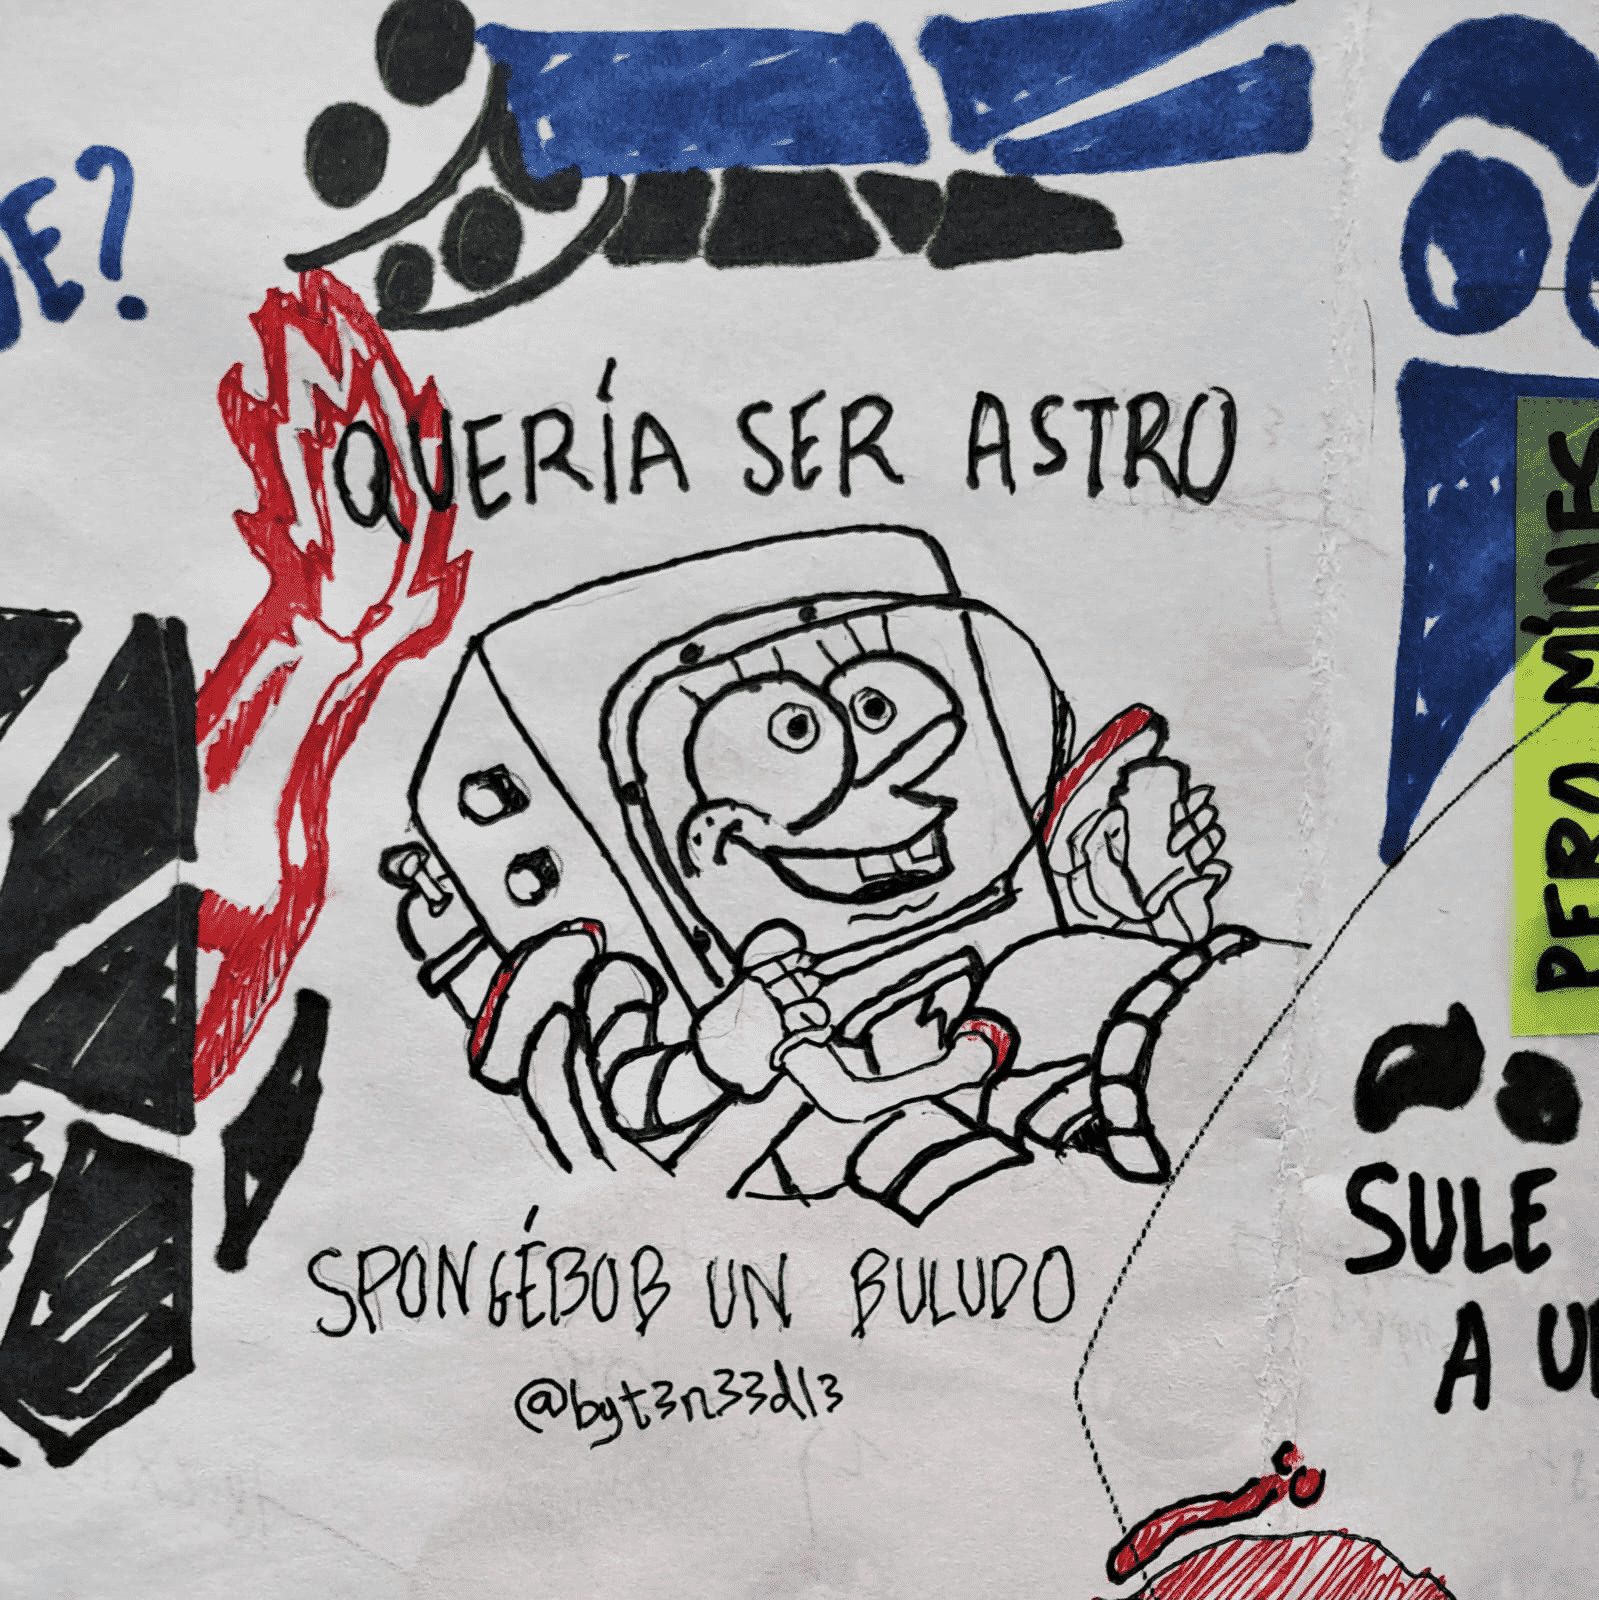 DE?
QUERÍA SER ASTRO
SPONGÉBOB UN BULUDO
@byt3n33dl3
PERO MÍNES
SULE
A UN